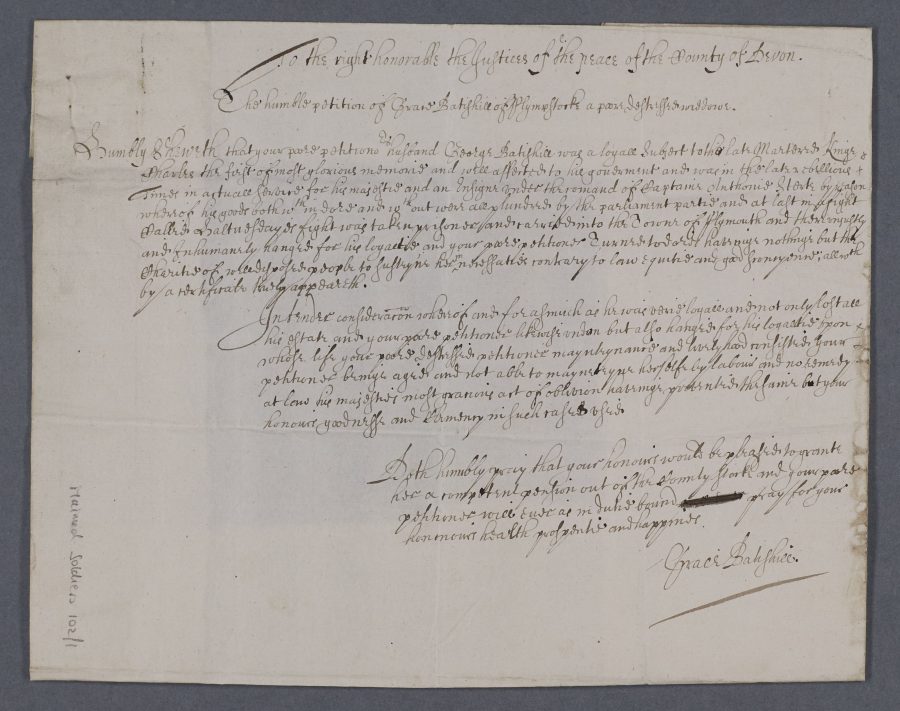 To the right honorable the Justices of the peace of the County of Devon.
The humble petition of Grace Batishill of Plympstocke a poore distressed widowe.
Humbly Sheweth that your poore petitioners husband George Batishill was a loyall subject to the late Marterred Kinge
Charles the first of most glorious memorie and well affected to his goverment and was in the late rebellious
Times in actuall service for his majestie and an Ensigne under the comand of Captaine Anthonie by reason
whereof his goods both wth in dore and wth out were all plundered by the parliament partie and at last in a fight
Called Saltuesdayes fight was taken prisoner and carried into the Towne of Plymouth and there unjustly
and Inhumanely hanged for his loyaltie and your poore petitioner Turned to dores haveinge nothinge but the
Charitie of welldisposed people to susteyne her necessaties contrary to law equitie and good conscyence, all wch
by a certificate truly appeareth.
In tender consideracon whereof and forasmuch as he was verie loyall and not only lost all
his estate and your poore petitioner likewise undon but also hanged for his loyaltie upon
whose life your poore distressed petitioner mayntynance and livelyhood consisted your
petitioner beinge aged and not able to maynteyne herselfe by labour and no remedy
at law his majesties most gracious act of oblivion haveinge prevented the same but your
honours goodnesse and Clemency in such cases used
Doth humbly pray that your honours would be pleased to grante
her a competent pension out of the County stock and your poore
petitioner will ever as in dutie bound pray for your
honnours health prosperitie and happines.
Grace Batishill.
Maimed Soldiers 102/1